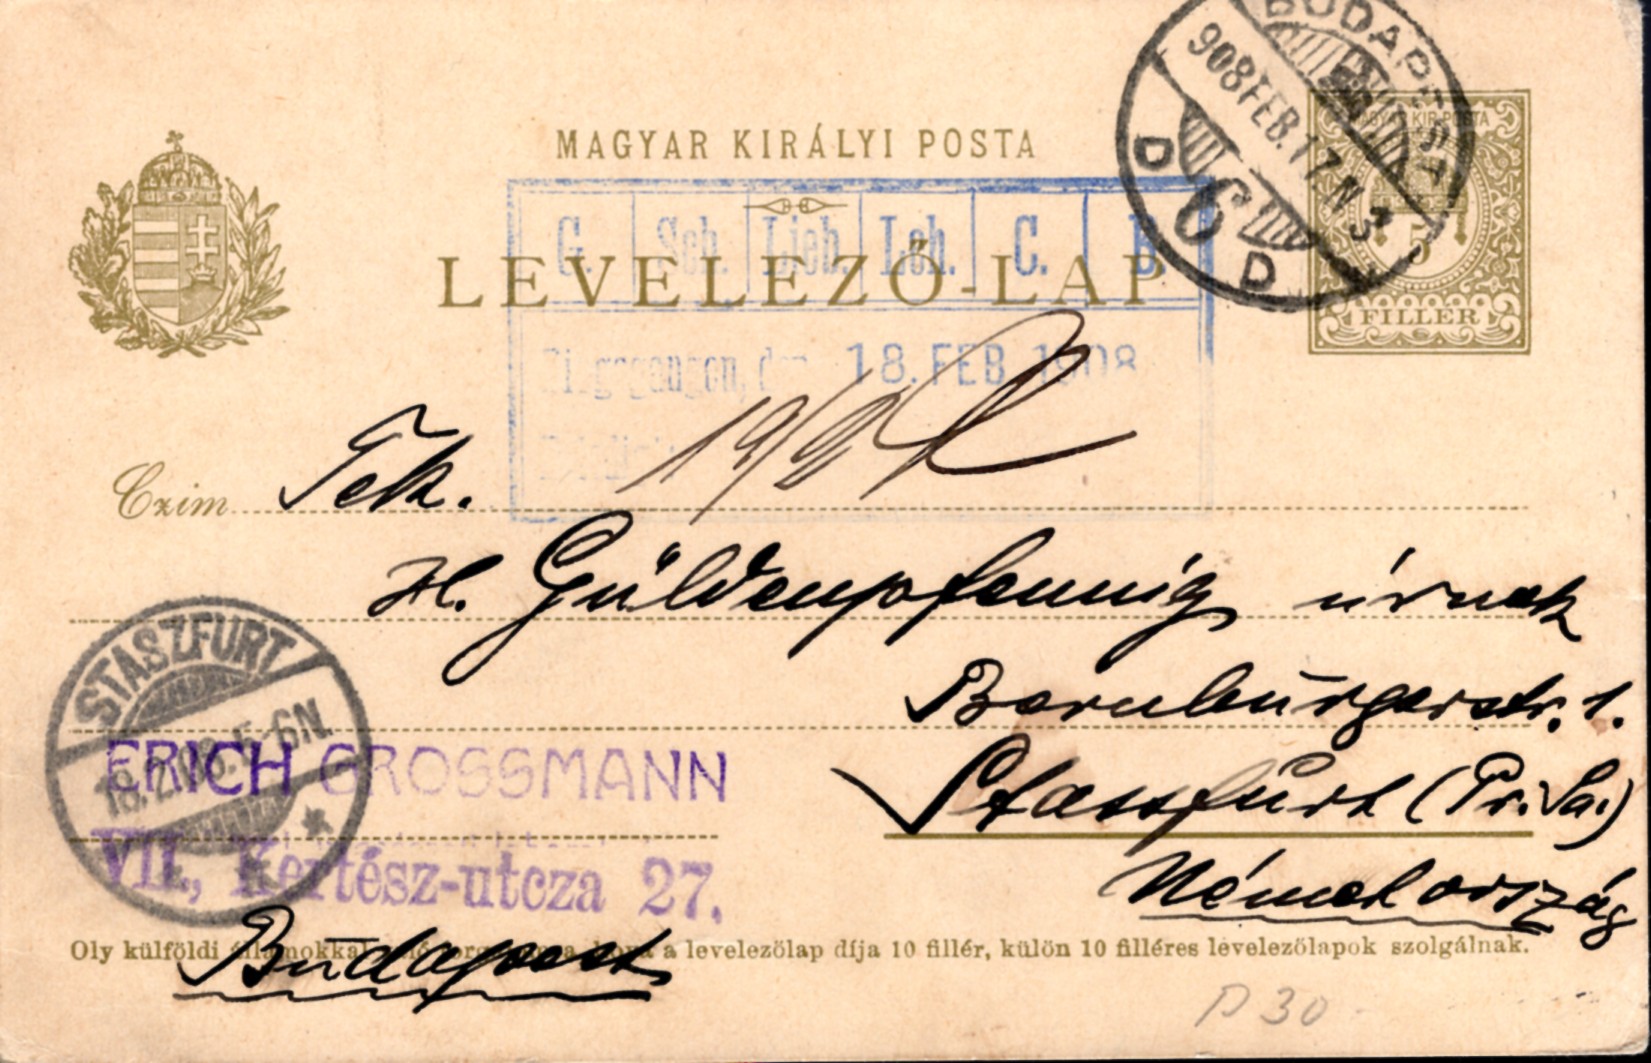 MAGYAR KIRÁLYI POSTA
LEVELEZŐ-LAP
BUDAPEST
908 FEB. 17. N 3
D 6 D
MAGYAR KIR. POSTA
5
FILLÉR
G. Sch. Lieb. Lch. C. B.
Eingegangen, den 18. FEB. 1908
19/2
Czim Tek.
H. Güldenpfennig úrnak
Bernburgerstr. 1.
Stassfurt (Pr. Sa.)
Németország
STASZFURT
18. 2. 08. 5-6N.
ERICH GROSSMANN
VII., Kertész-utcza 27.
Budapest
Oly külföldi államokkal a levelezőlap díja 10 fillér, külön 10 filléres levelezőlapok szolgálnak.
P 30